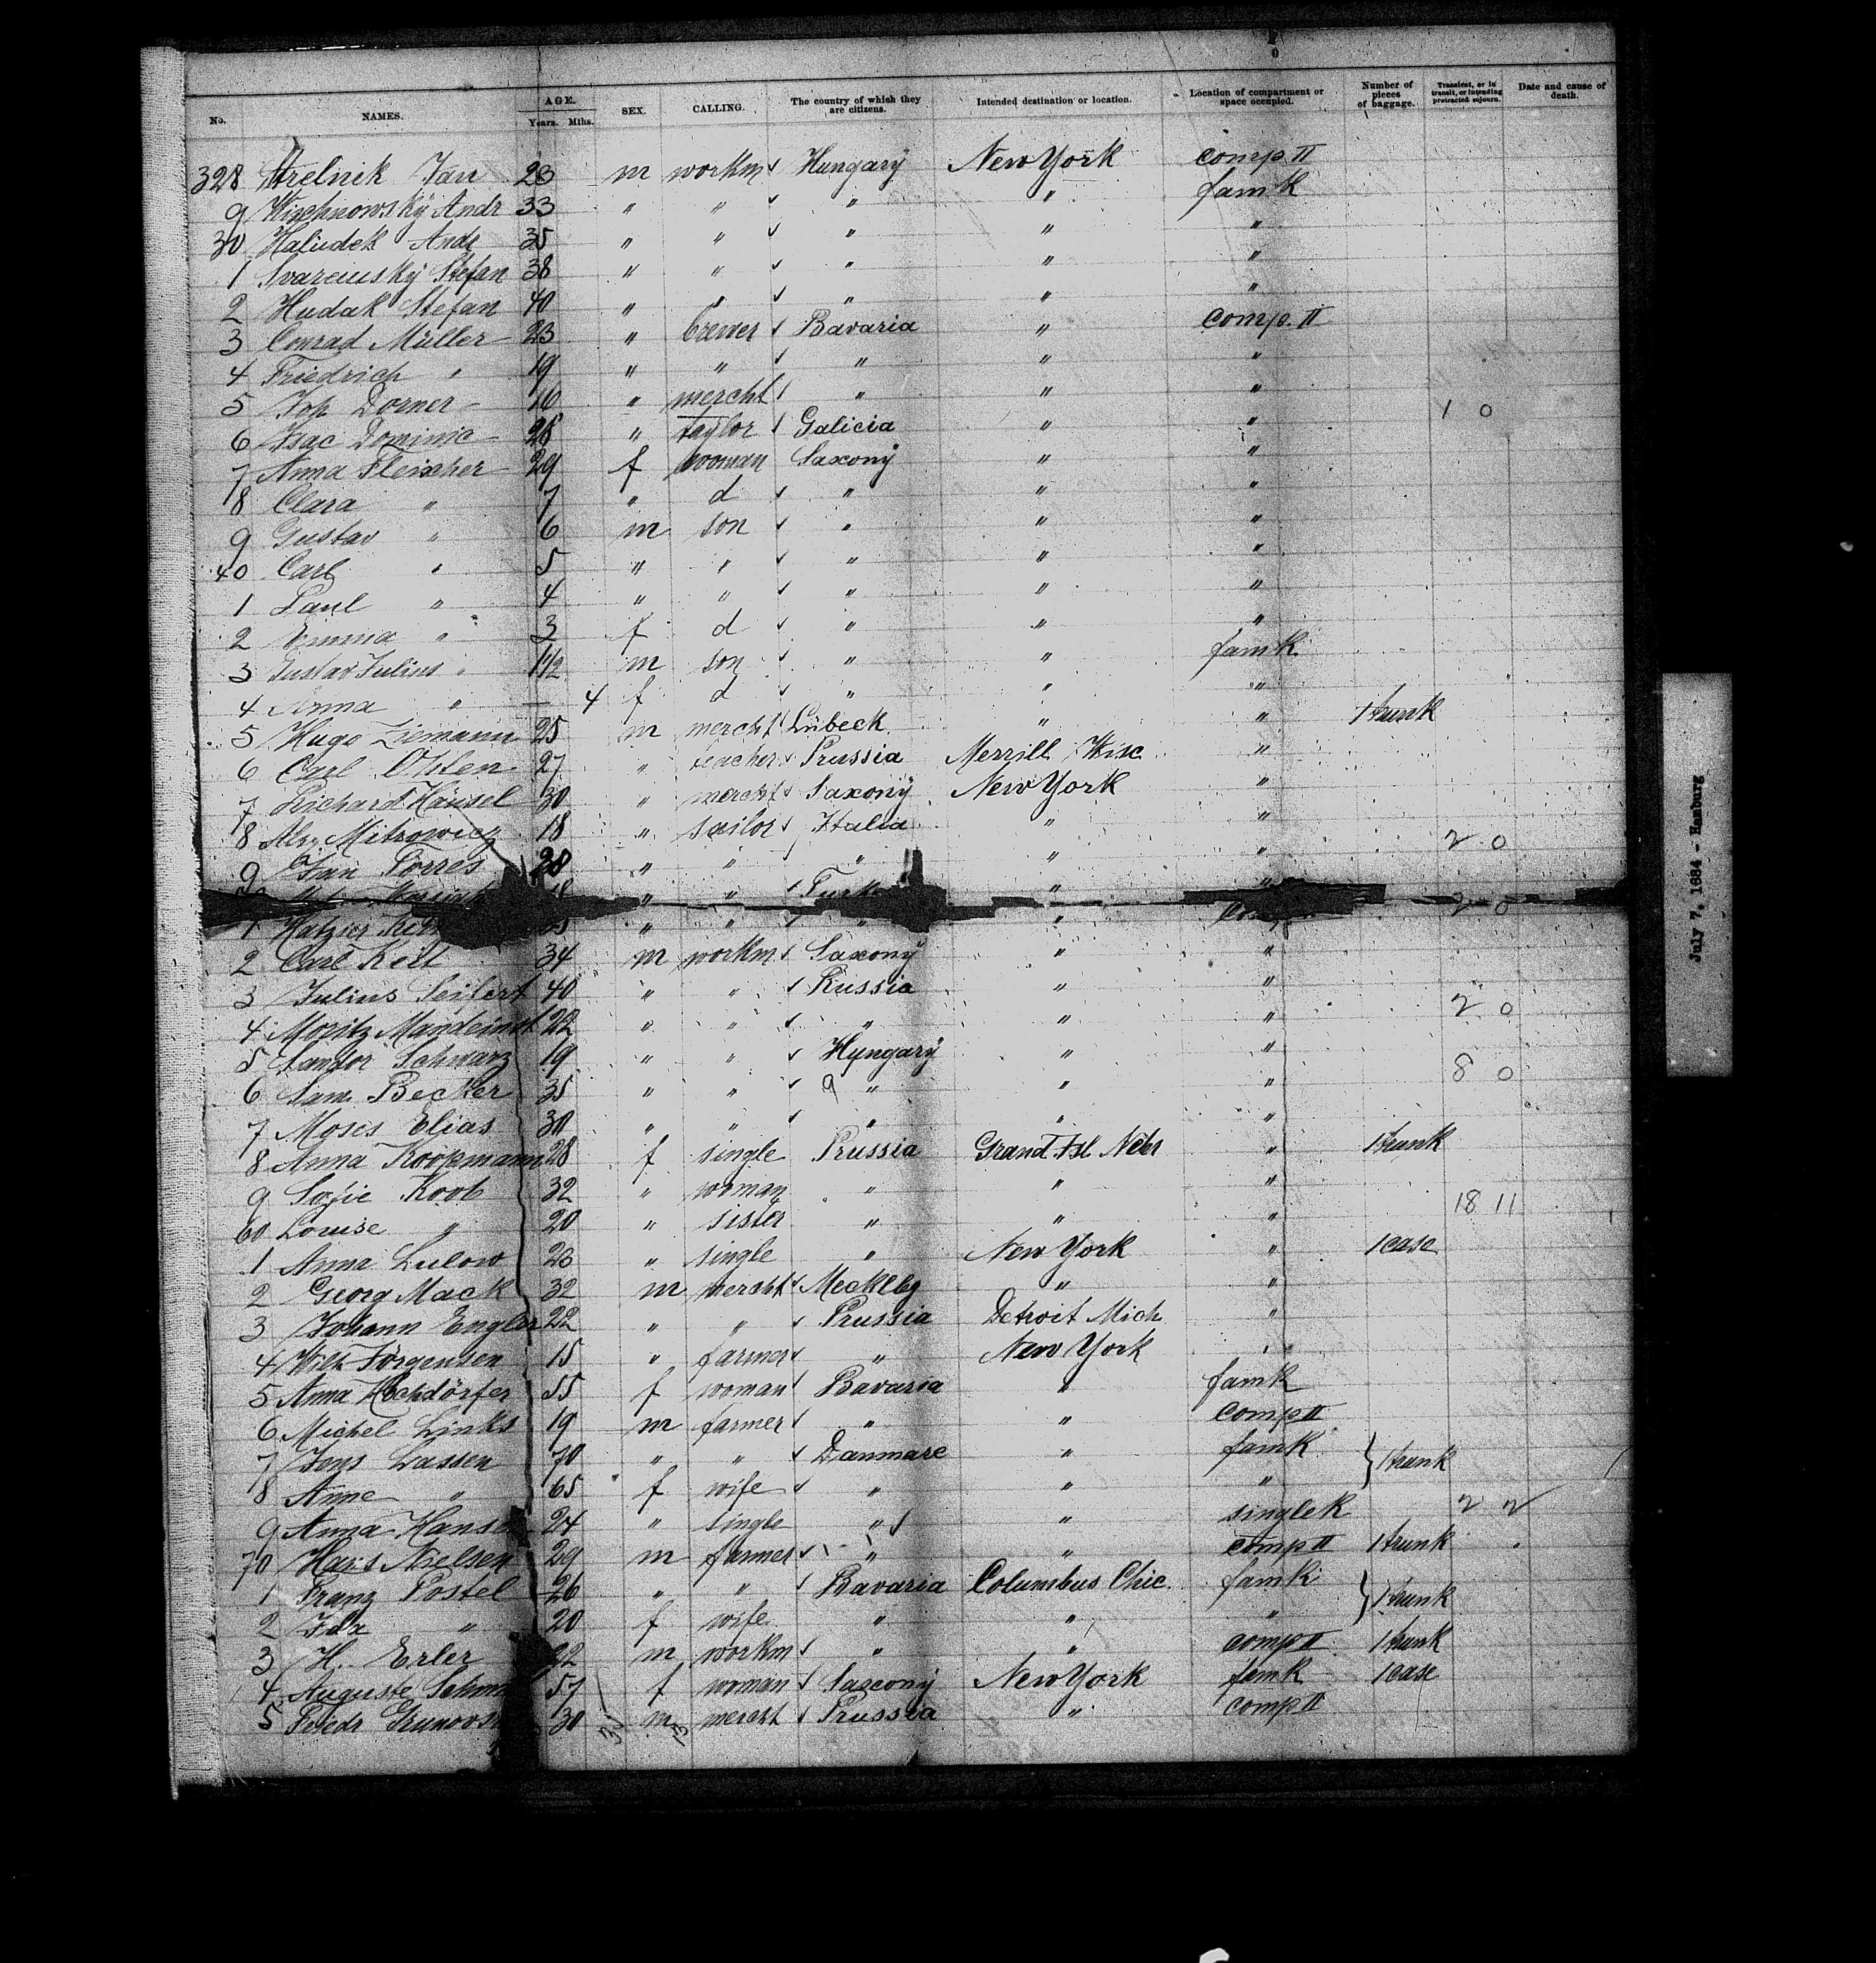 No. NAMES. AGE. Years. Mths. SEX. CALLING. The country of which they are citizens. Intended destination or location. Location of compartment or space occupied. Number of pieces of baggage. Transient, or in transit, or intending protracted sojourn. Date and cause of death.
328 Strelnik Jan 23 m workm Hungary New York comp. II
9 Andr 33 " " " " fam k
30 Haludek Andr 35 " " " " "
1 Stefan 38 " " " " "
2 Hudak Stefan 40 " " " " "
3 Conrad Müller 23 " brewer Bavaria " Comp. II
4 Friedrich " 19 " " " " "
5 Joh Dorner 16 " mercht " " " 1 0
6 Isac Dominic 28 " taylor Galicia " "
7 Anna Fleischer 29 f woman Saxony " "
8 Clara " 7 " d " " "
9 Gustav " 6 m son " " "
40 Carl " 5 " " " " "
1 Paul " 4 " " " " "
2 Emma " 3 f d " " "
3 Gustav Julius " 1 1/2 m son " " fam k
4 Anna " — 4 f d " " "
5 Hugo Ziemann 25 m mercht Lübeck " " 1 trunk
6 Carl Olsten 27 " teacher Prussia Merrill Wisc "
7 Richard Hänsel 30 " mercht Saxony New York "
8 Alex Mitrowicz 18 " sailor Italia " " 2 0
9 Jan Torres 28 " " " " "
" " " " 2 0
1 " " " "
2 Carl Keil 34 m workm Saxony " "
3 Julius Seifert 40 " " Russia " "
4 Moritz 22 " " " " " 2 0
5 Sandor Schwarz 19 " " Hungary " "
6 Sam Becker 35 " " 9 " " " 8 0
7 Moses Elias 30 " " " " "
8 Anna Koopmann 28 f single Prussia Grand Isl Nebr " 1 trunk
9 Sofie Koob 32 " woman " " "
60 Louise " 20 " sister " " " 18 11
1 Anna Lulow 23 " single " New York " 1 case
2 Georg Mack 32 m mercht Mecklbg " "
3 Johann Engler 22 " " Prussia Detroit Mich "
4 Wilh Jörgensen 15 " farmer " New York "
5 Anna Hochdörfer 55 f woman Bavaria " fam k
6 Michel Links 19 m farmer " " comp II
7 Jens Lassen 70 " " Danmarc " fam k } 1 trunk
8 Anne " 65 f wife " " "
9 Anna 24 " single " " single k 2 2
70 Hans Nielsen 29 m farmer " " comp II 1 trunk
1 Franz Postel 26 " " Bavaria Columbus Chic. fam k } 1 trunk
2 Ida " 20 f wife " " "
3 H. Erler 22 m workm " " comp II 1 trunk
4 Auguste 57 f woman Saxony New York fam k 1 case
5 Friedr 30 m mercht Prussia " comp II
July 7, 1884 - Hamburg